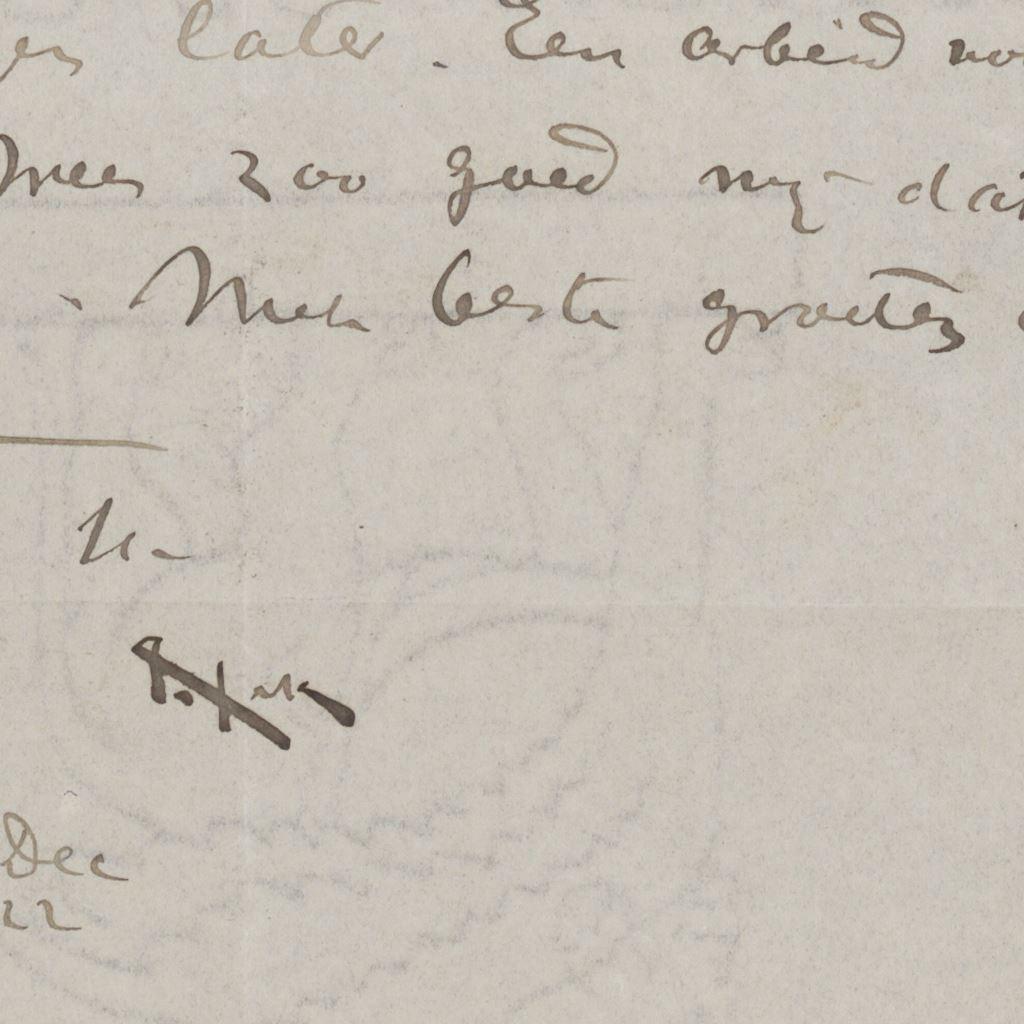 later. Een arbeid
zoo goed mij dat
. Met beste groeten
Dec
22